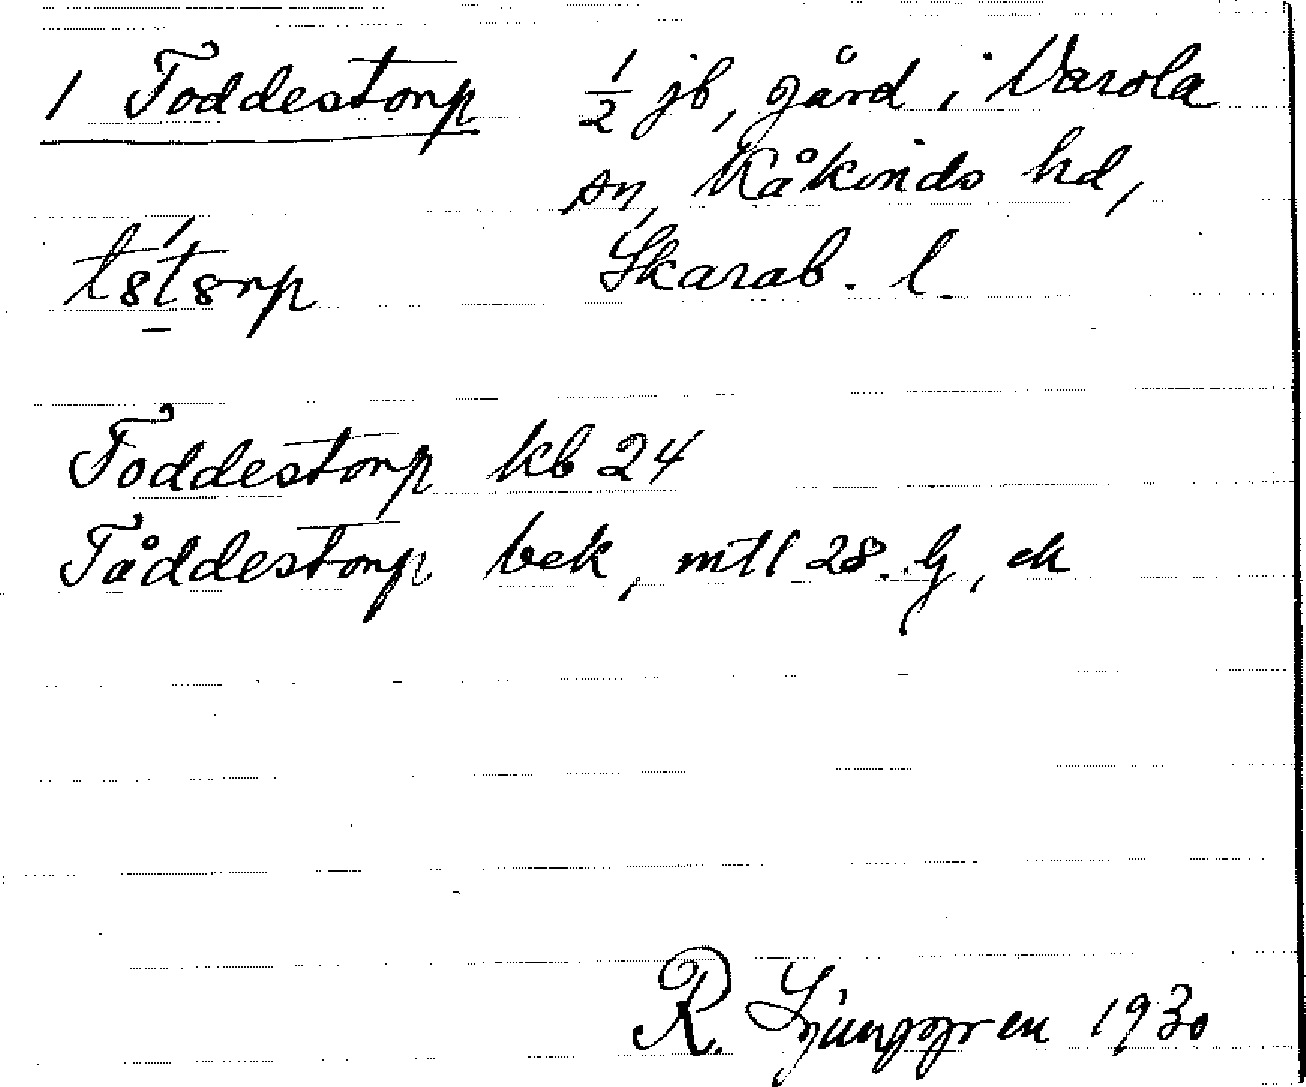 1 Toddestorp ½ jb, gård i Varola
sn, Kåkinds hd,
t8́t8rp Skarab. l.
Toddestorp kb 24
Tåddestorp bek, mtl 28. G, ek
R. Ljunggren 1930